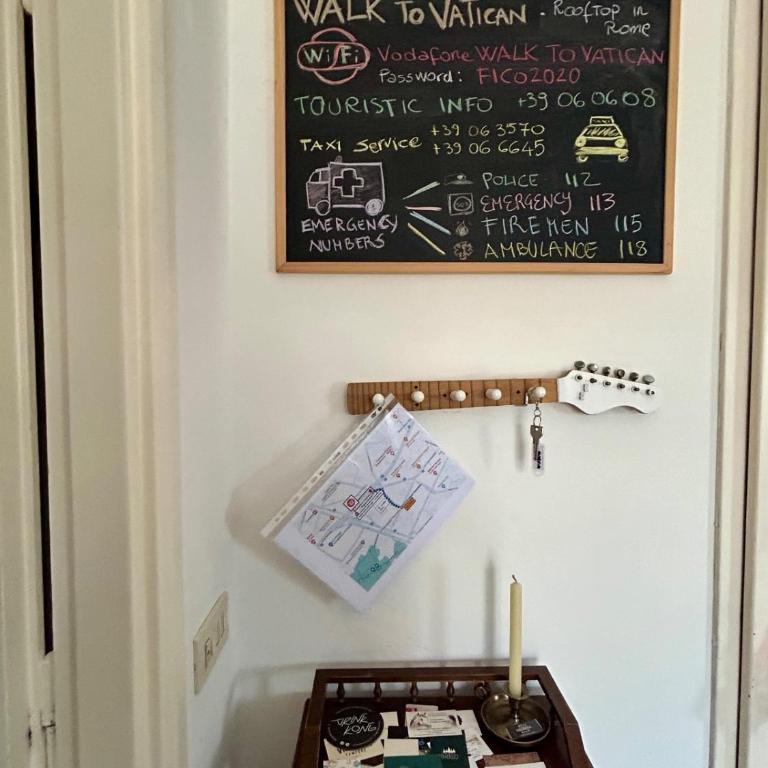 WALK TO VATICAN - Rooftop in Rome
WiFi Vodafone WALK TO VATICAN
Password: FICO2020
TOURISTIC INFO +39 06 06 08
TAXI Service +39 06 3570
+39 06 6645
POLICE 112
SOS EMERGENCY 113
EMERGENCY NUMBERS
FIREMEN 115
AMBULANCE 118